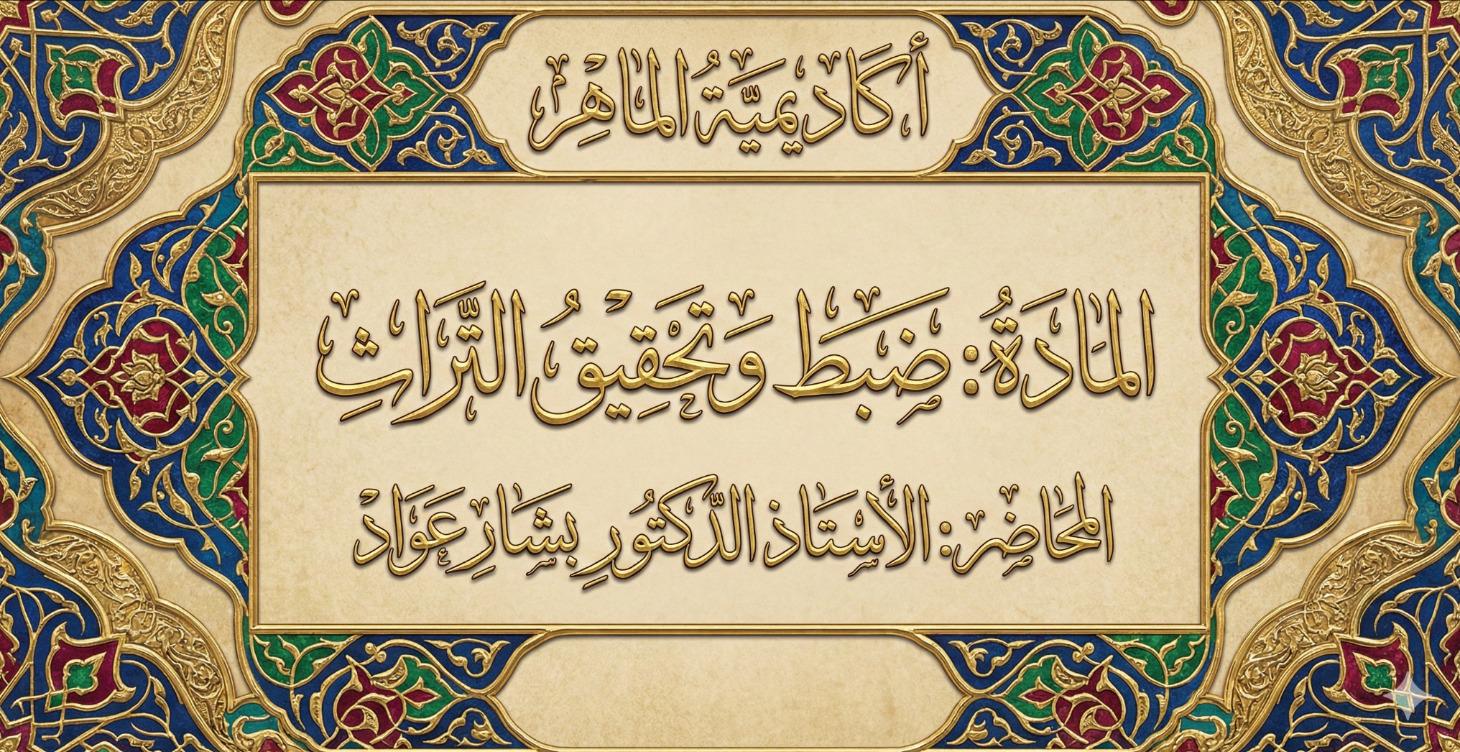 أكاديميَّةُ الماهِر
المادَةُ: ضبَطَ وَتحَقِيقُ التَّراثِ
المحَاضر: الأستَاذ الدَّكتوُرِ بشَارِ عَوَاد